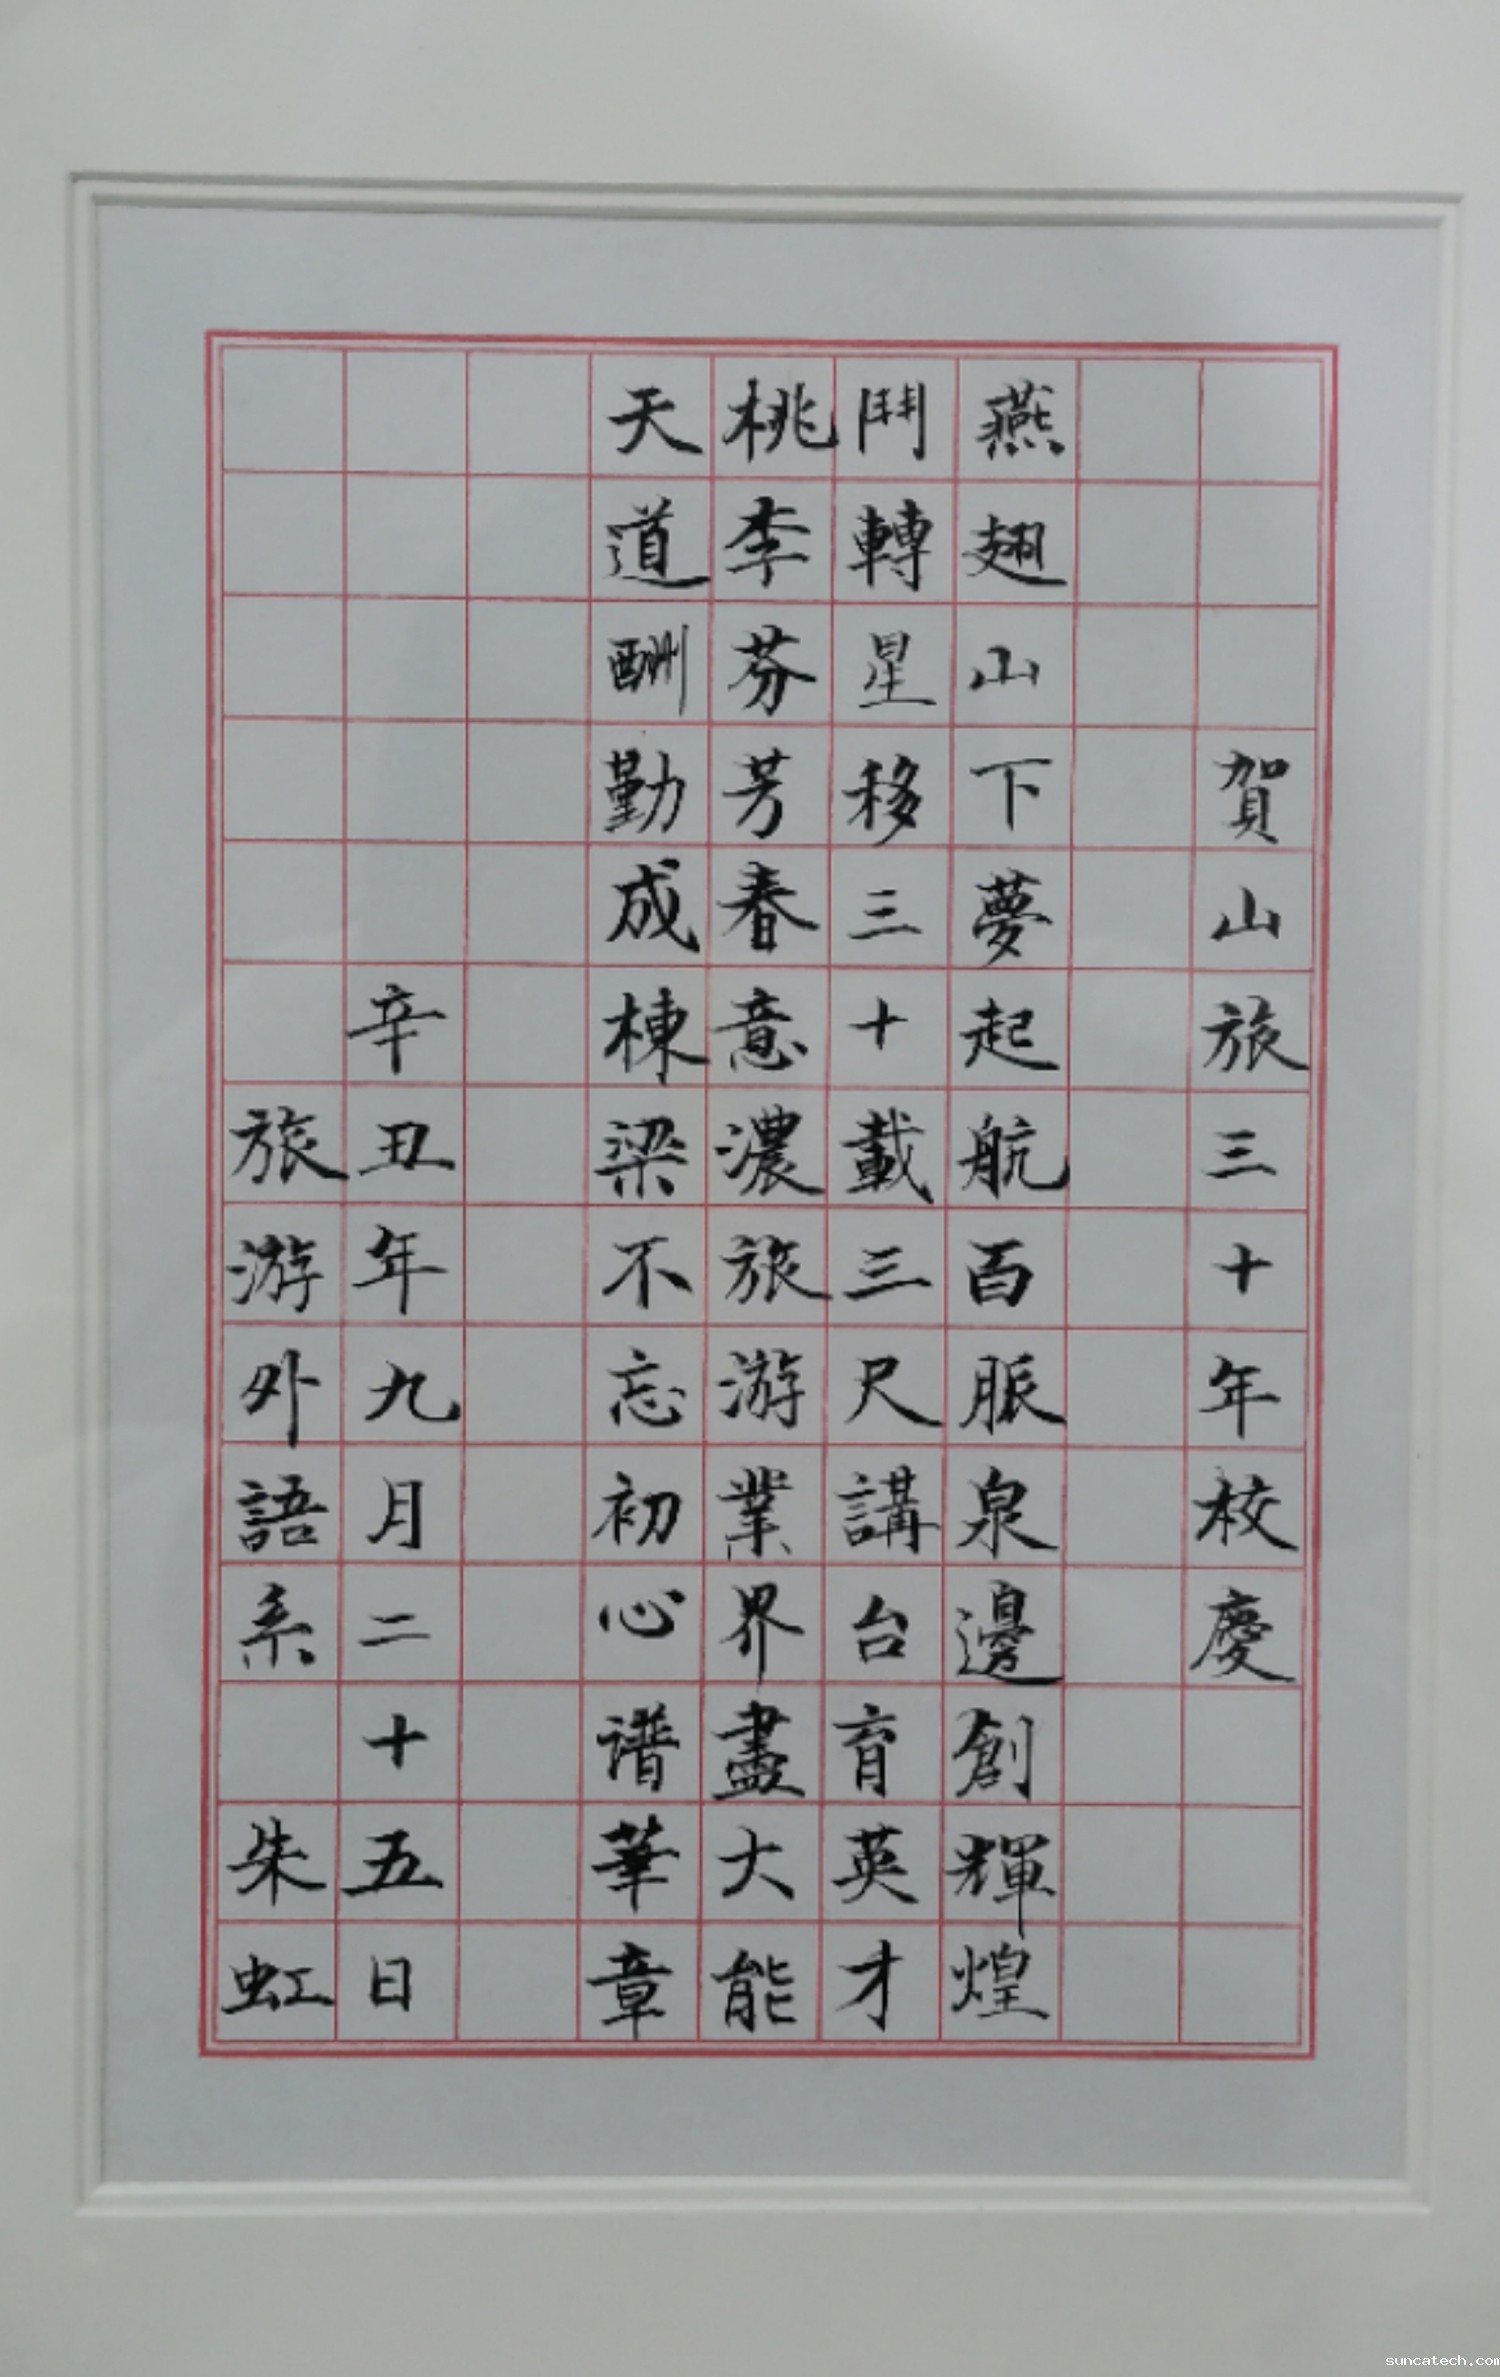 賀山旅三十年校慶
燕翅山下夢起航百脈泉邊創輝煌
鬥轉星移三十載三尺講台育英才
桃李芬芳春意濃旅游業界盡大能
天道酬勤成棟梁不忘初心谱華章
辛丑年九月二十五日
旅游外語系 朱虹
suncatech.com